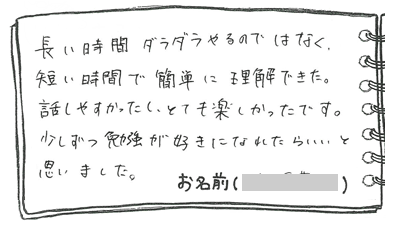 長い時間 ダラダラやるのではなく、
短い時間で簡単に理解できた。
話しやすかったし、とても楽しかったです。
少しずつ勉強が好きになれたらいいと
思いました。
お名前( )